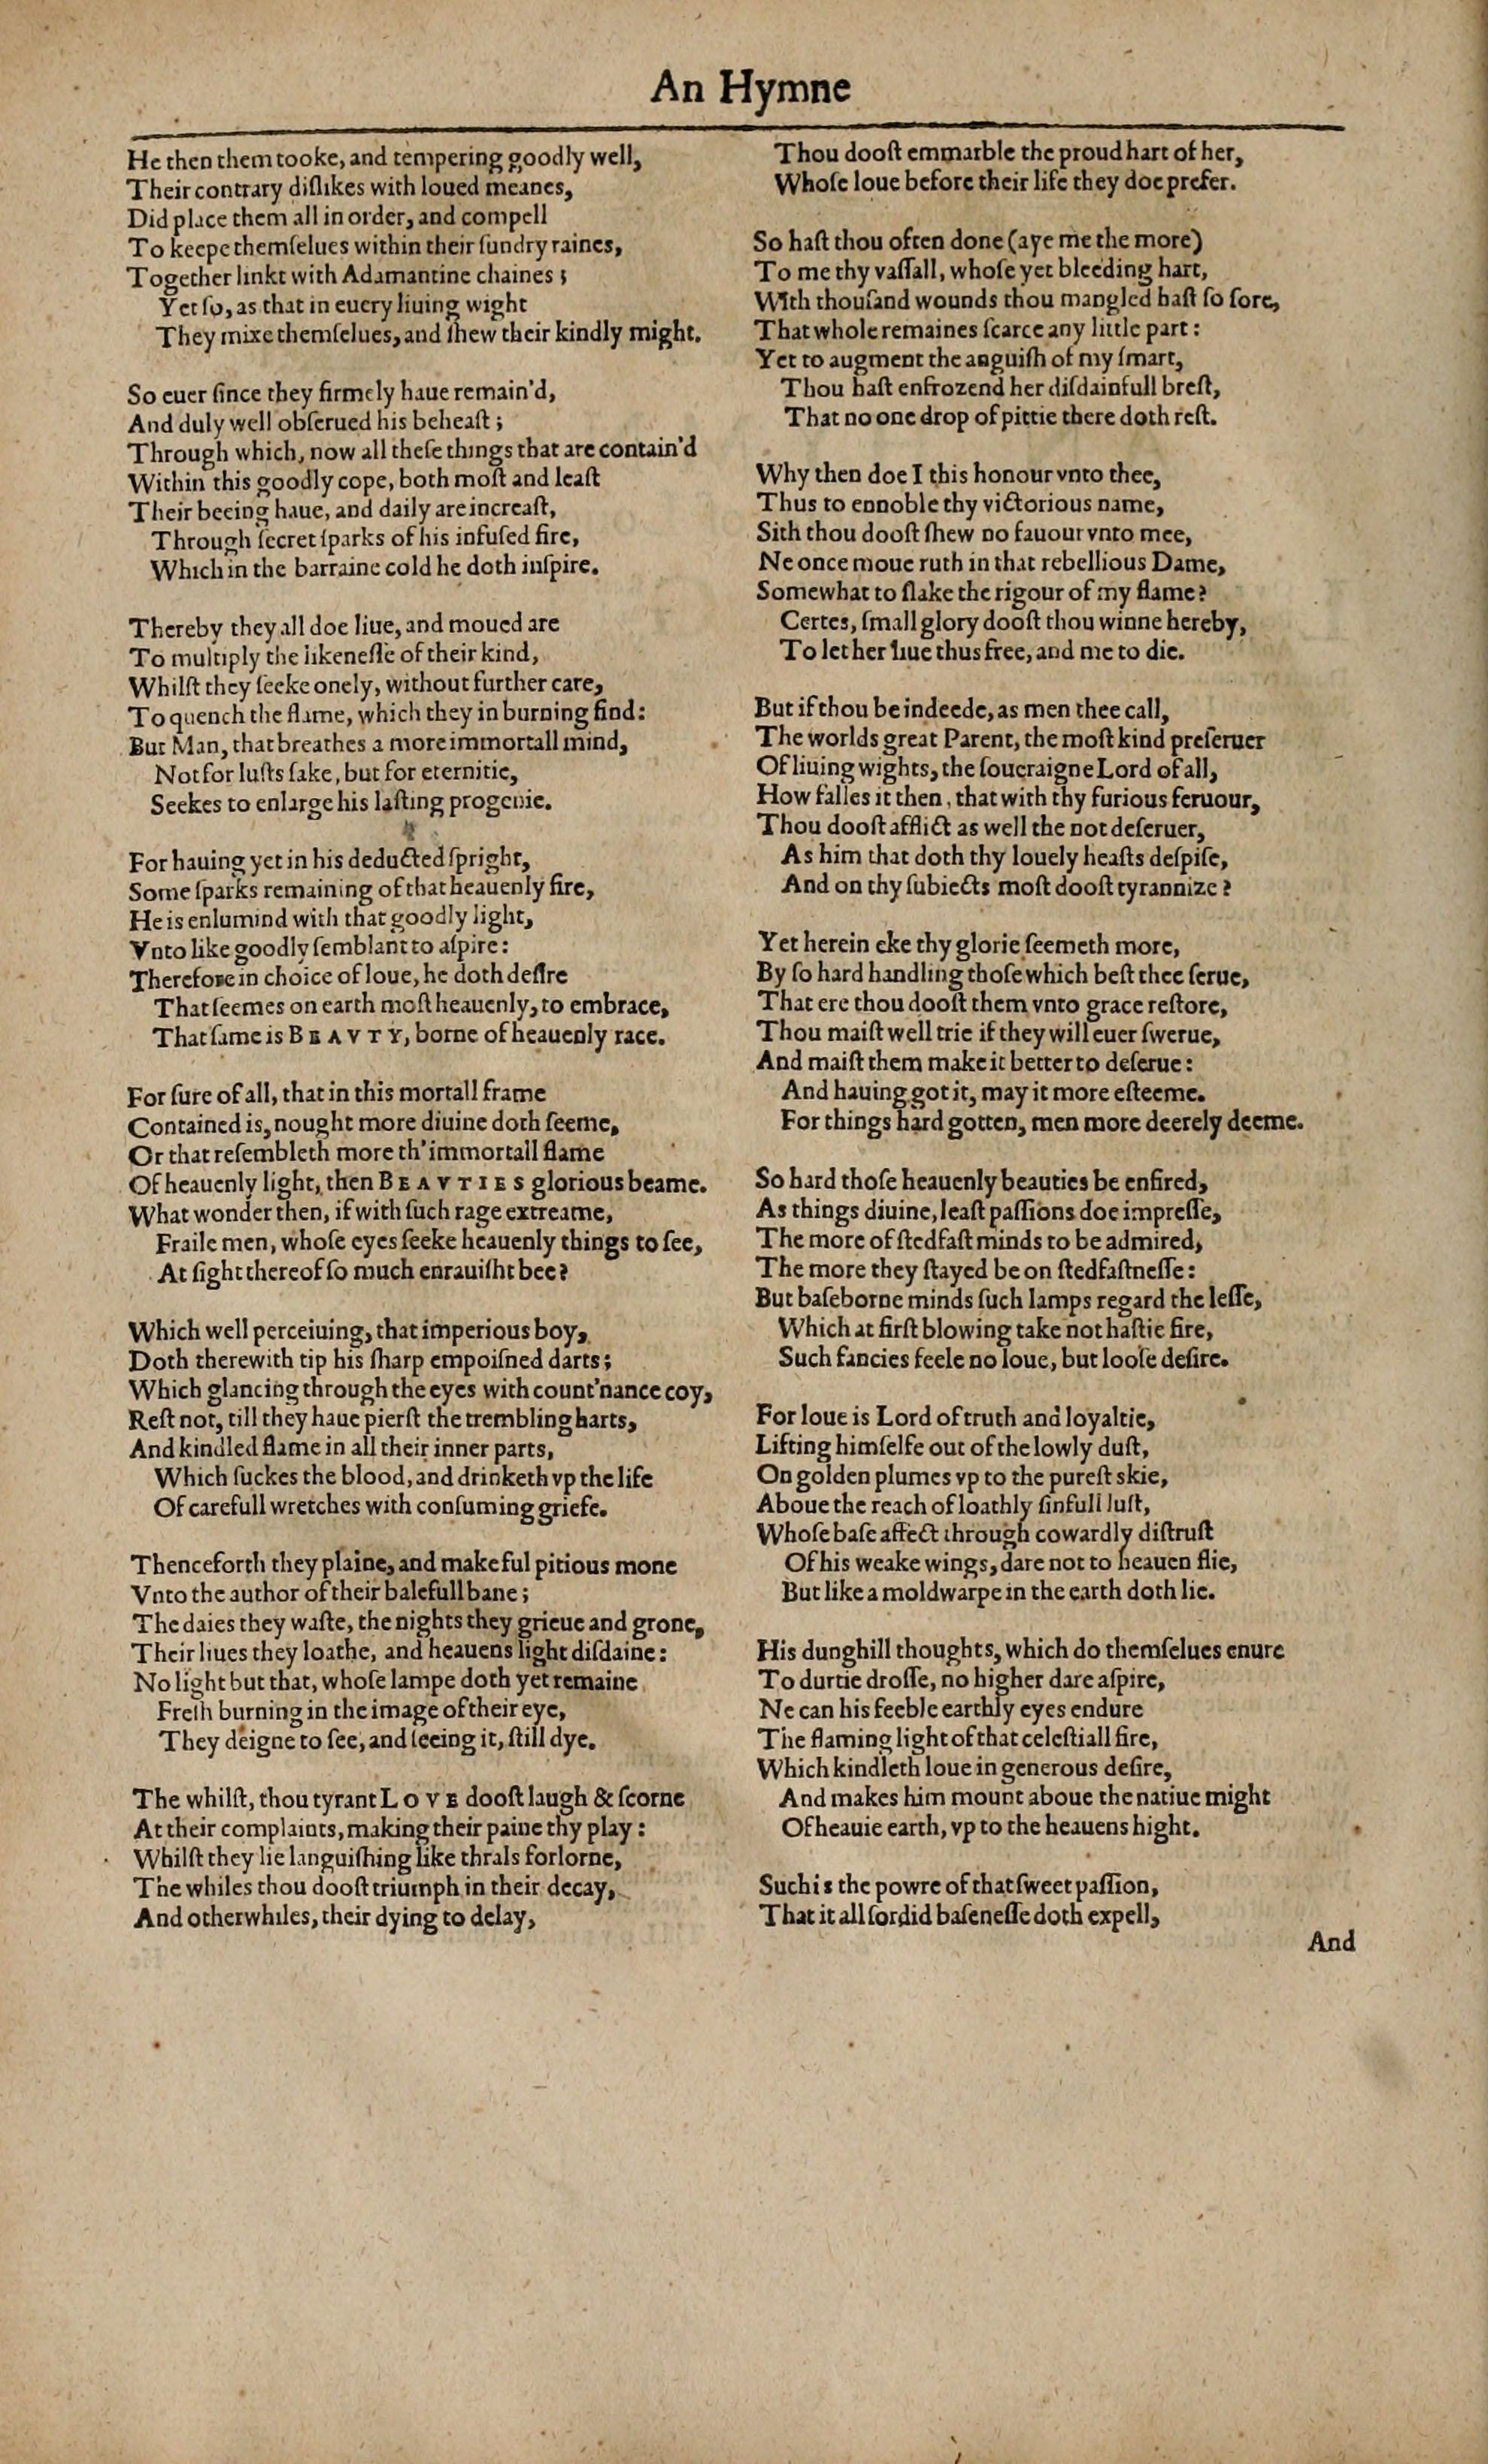 An Hymne
He then them tooke, and tempering goodly well,
Their contrary diſlikes with loued meanes,
Did place them all in order, and compell
To keepe themſelues within their ſundry raines,
Together linkt with Adamantine chaines;
Yet ſo, as that in euery liuing wight
They mixe themſelues, and ſhew their kindly might.
So euer ſince they firmely haue remain'd,
And duly well obſerued his beheaſt;
Through which, now all theſe things that are contain'd
Within this goodly cope, both moſt and leaſt
Their beeing haue, and daily are increaſt,
Through ſecret ſparks of his infuſed fire,
Which in the barraine cold he doth inſpire.
Thereby they all doe liue, and moued are
To multiply the likeneſſe of their kind,
Whilſt they ſeeke onely, without further care,
To quench the flame, which they in burning find:
But Man, that breathes a more immortall mind,
Not for luſts ſake, but for eternitie,
Seekes to enlarge his laſting progenie.
For hauing yet in his deducted ſpright,
Some ſparks remaining of that heauenly fire,
He is enlumind with that goodly light,
Vnto like goodly ſemblant to aſpire:
Therefore in choice of loue, he doth deſire
That ſeemes on earth moſt heauenly, to embrace,
That ſame is BEAVTY, borne of heauenly race.
For ſure of all, that in this mortall frame
Contained is, nought more diuine doth ſeeme,
Or that reſembleth more th'immortall flame
Of heauenly light, then BEAVTIES glorious beame.
What wonder then, if with ſuch rage extreame,
Fraile men, whoſe eyes ſeeke heauenly things to ſee,
At ſight thereof ſo much enrauiſht bee?
Which well perceiuing, that imperious boy,
Doth therewith tip his ſharp empoiſned darts;
Which glancing through the eyes with count'nance coy,
Reſt not, till they haue pierſt the trembling harts,
And kindled flame in all their inner parts,
Which ſuckes the blood, and drinketh vp the life
Of carefull wretches with conſuming griefe.
Thenceforth they plaine, and make ful pitious mone
Vnto the author of their balefull bane;
The daies they waſte, the nights they grieue and grone,
Their liues they loathe, and heauens light diſdaine:
No light but that, whoſe lampe doth yet remaine
Freſh burning in the image of their eye,
They deigne to ſee, and ſeeing it, ſtill dye.
The whilſt, thou tyrant LOVE dooſt laugh & ſcorne
At their complaints, making their paine thy play:
Whilſt they lie languiſhing like thrals forlorne,
The whiles thou dooſt triumph in their decay,
And otherwhiles, their dying to delay,
Thou dooſt emmarble the proud hart of her,
Whoſe loue before their life they doe prefer.
So haſt thou often done (aye me the more)
To me thy vaſſall, whoſe yet bleeding hart,
With thouſand wounds thou mangled haſt ſo ſore,
That whole remaines ſcarce any little part:
Yet to augment the anguiſh of my ſmart,
Thou haſt enfrozend her diſdainfull breſt,
That no one drop of pittie there doth reſt.
Why then doe I this honour vnto thee,
Thus to ennoble thy victorious name,
Sith thou dooſt ſhew no fauour vnto mee,
Ne once moue ruth in that rebellious Dame,
Somewhat to ſlake the rigour of my flame?
Certes, ſmall glory dooſt thou winne hereby,
To let her liue thus free, and me to die.
But if thou be indeede, as men thee call,
The worlds great Parent, the moſt kind preſeruer
Of liuing wights, the ſoueraigne Lord of all,
How falles it then, that with thy furious feruour,
Thou dooſt afflict as well the not deſeruer,
As him that doth thy louely heaſts deſpiſe,
And on thy ſubiects moſt dooſt tyrannize?
Yet herein eke thy glorie ſeemeth more,
By ſo hard handling thoſe which beſt thee ſerue,
That ere thou dooſt them vnto grace reſtore,
Thou maiſt well trie if they will euer ſwerue,
And maiſt them make it better to deſerue:
And hauing got it, may it more eſteeme.
For things hard gotten, men more deerely deeme.
So hard thoſe heauenly beauties be enfired,
As things diuine, leaſt paſſions doe impreſſe,
The more of ſtedfaſt minds to be admired,
The more they ſtayed be on ſtedfaſtneſſe:
But baſeborne minds ſuch lamps regard the leſſe,
Which at firſt blowing take not haſtie fire,
Such fancies feele no loue, but looſe deſire.
For loue is Lord of truth and loyaltie,
Lifting himſelfe out of the lowly duſt,
On golden plumes vp to the pureſt skie,
Aboue the reach of loathly ſinfull luſt,
Whoſe baſe affect through cowardly diſtruſt
Of his weake wings, dare not to heauen flie,
But like a moldwarpe in the earth doth lie.
His dunghill thoughts, which do themſelues enure
To durtie droſſe, no higher dare aſpire,
Ne can his feeble earthly eyes endure
The flaming light of that celeſtiall fire,
Which kindleth loue in generous deſire,
And makes him mount aboue the natiue might
Of heauie earth, vp to the heauens hight.
Such is the powre of that ſweet paſſion,
That it all ſordid baſeneſſe doth expell,
And